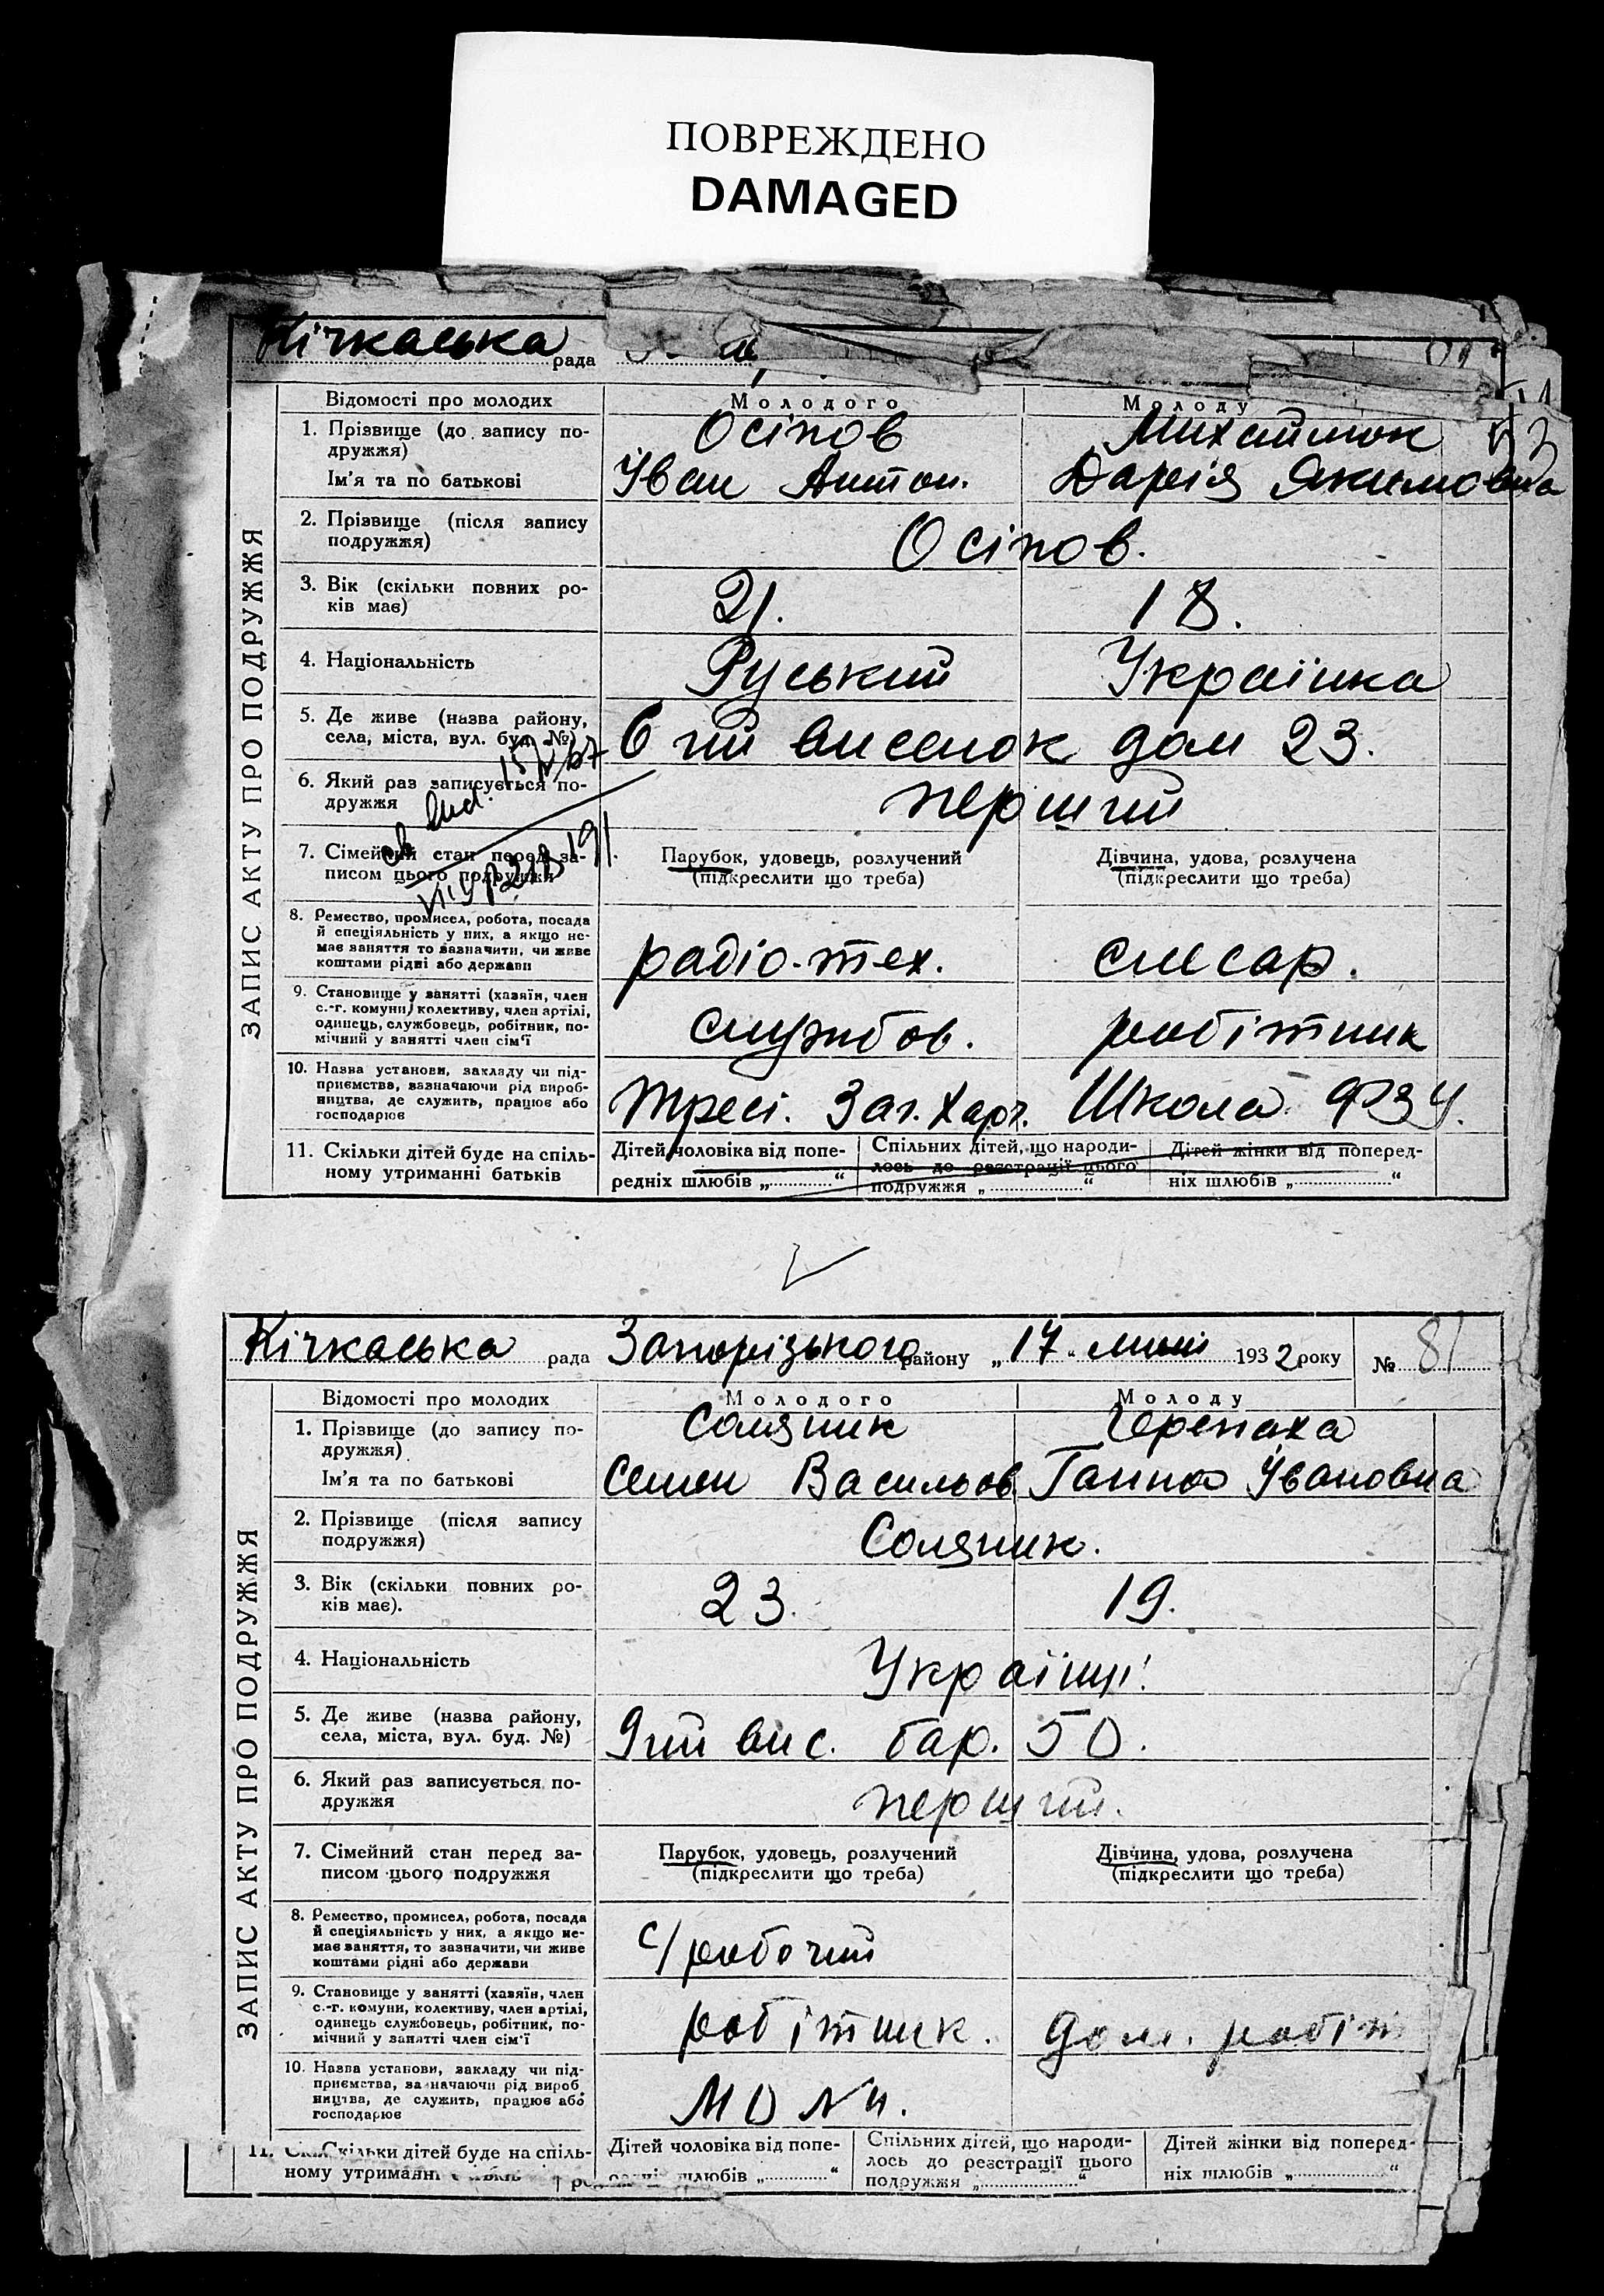 ПОВРЕЖДЕНО
DAMAGED
Кічкаська рада
ЗАПИС АКТУ ПРО ПОДРУЖЖЯ
Відомості про молодих Молодого Молоду
1. Прізвище (до запису по- Осіпов Михайлюк
дружжя)
Ім'я та по батькові Іван Антон. Дарія Якимовна
2. Прізвище (після запису
подружжя) Осіпов.
3. Вік (скільки повних ро- 21. 18.
ків має)
4. Національність Руський Українка
5. Де живе (назва району,
села, міста, вул. буд. №) 6 ий виселок дом 23.
6. Який раз записується по- перший
дружжя
7. Сімейний стан перед за- Парубок, удовець, розлучений Дівчина, удова, розлучена
писом цього подружжя (підкреслити що треба) (підкреслити що треба)
8. Ремество, промисел, робота, посада
й спеціяльність у них, а якщо не-
має заняття то зазначити, чи живе радіо-тех. слюсар.
коштами рідні або держави
9. Становище у занятті (хазяїн, член
с.-г. комуни, колективу, член артілі,
одинець, службовець, робітник, по- службов. робітник
мічний у занятті член сім'ї
10. Назва установи, закладу чи під-
приємства, зазначаючи рід вироб-
ництва, де служить, працює або Заг. Харч. Школа ФЗУ.
господарює
11. Скільки дітей буде на спіль- Дітей чоловіка від попе- Спільних дітей, що народи- Дітей жінки від поперед-
ному утриманні батьків редніх шлюбів „ “ лось до реєстрації цього ніх шлюбів „ “
подружжя „ “
Кічкаська рада Запорізького району „17“ 1932 року № 81
ЗАПИС АКТУ ПРО ПОДРУЖЖЯ
Відомості про молодих Молодого Молоду
1. Прізвище (до запису по- Соляник Черепаха
дружжя)
Ім'я та по батькові Семен Васильов Ганна Івановна
2. Прізвище (після запису
подружжя) Соляник.
3. Вік (скільки повних ро- 23. 19.
ків має).
4. Національність Українці
5. Де живе (назва району,
села, міста, вул. буд. №) 9ий вис. бар. 50.
6. Який раз записується по-
дружжя перший.
7. Сімейний стан перед за- Парубок, удовець, розлучений Дівчина, удова, розлучена
писом цього подружжя (підкреслити що треба) (підкреслити що треба)
8. Ремество, промисел, робота, посада
й спеціяльність у них, а якщо не-
має заняття, то зазначити, чи живе с/рабочий
коштами рідні або держави
9. Становище у занятті (хазяїн, член
с.-г. комуни, колективу, член артілі,
одинець службовець, робітник, по- робітник. дом. робіт
мічний у занятті член сім'ї
10. Назва установи, закладу чи під-
приємства, зазначаючи рід вироб
ництва, де служить, працює або
господарює
11. Скільки дітей буде на спіль- Дітей чоловіка від попе- Спільних дітей, що народи- Дітей жінки від поперед-
ному утриманні шлюбів „ “ лось до реєстрації цього ніх шлюбів „ “
подружжя „ “